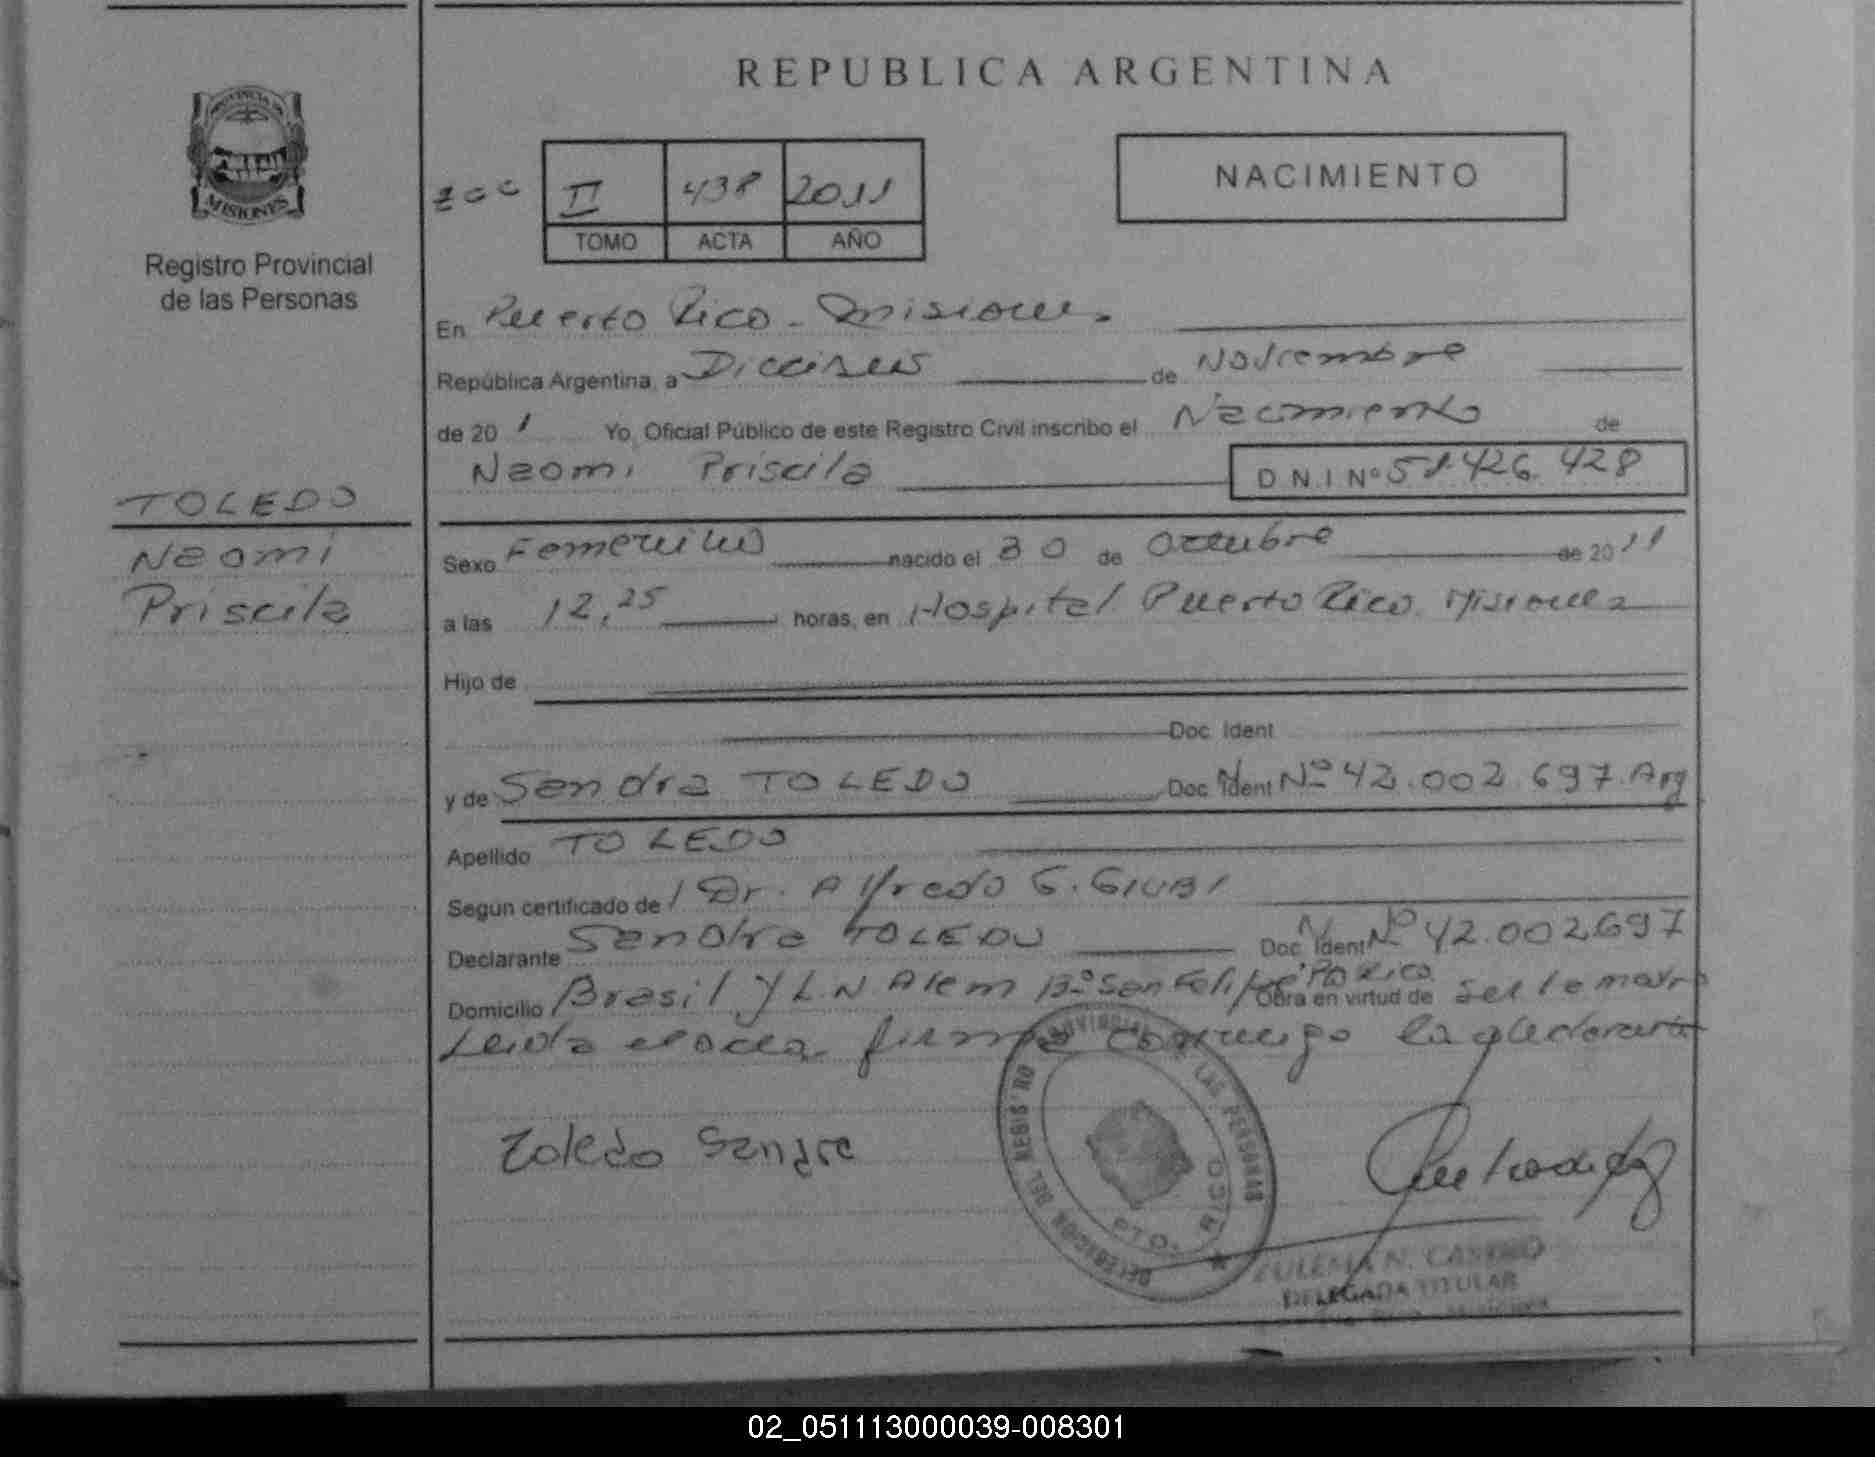 REPUBLICA ARGENTINA
PROVINCIA DE
MISIONES
Registro Provincial
de las Personas
II 438 2011
TOMO ACTA AÑO
NACIMIENTO
En Puerto Rico - Misiones.
República Argentina, a Dieciseis de Noviembre
de 20 1 Yo, Oficial Público de este Registro Civil inscribo el Nacimiento de
Naomi Priscila D.N.I Nº 51.426.428
TOLEDO
Naomi
Priscila
Sexo Femenino nacido el 30 de Octubre de 2011
a las 12,25 horas, en Hospital Puerto Rico Misiones
Hijo de
Doc. Ident
y de Sandra TOLEDO Doc. Ident Nº 42.002.697.Arg
Apellido TOLEDO
Según certificado de Dr. Alfredo G. GIUBI
Declarante Sandra TOLEDO Doc. Ident Nº 42.002697
Domicilio Brasil y L.N Alem Bº San Felipe Pto Rico Obra en virtud de ser la madre
Leida el acta firma conmigo la declarante
Toledo Sandra
DELEGACION DEL REGISTRO PROVINCIAL DE LAS PERSONAS
PTO. RICO
ZULEMA N. CASTRO
DELEGADA TITULAR
02_051113000039-008301